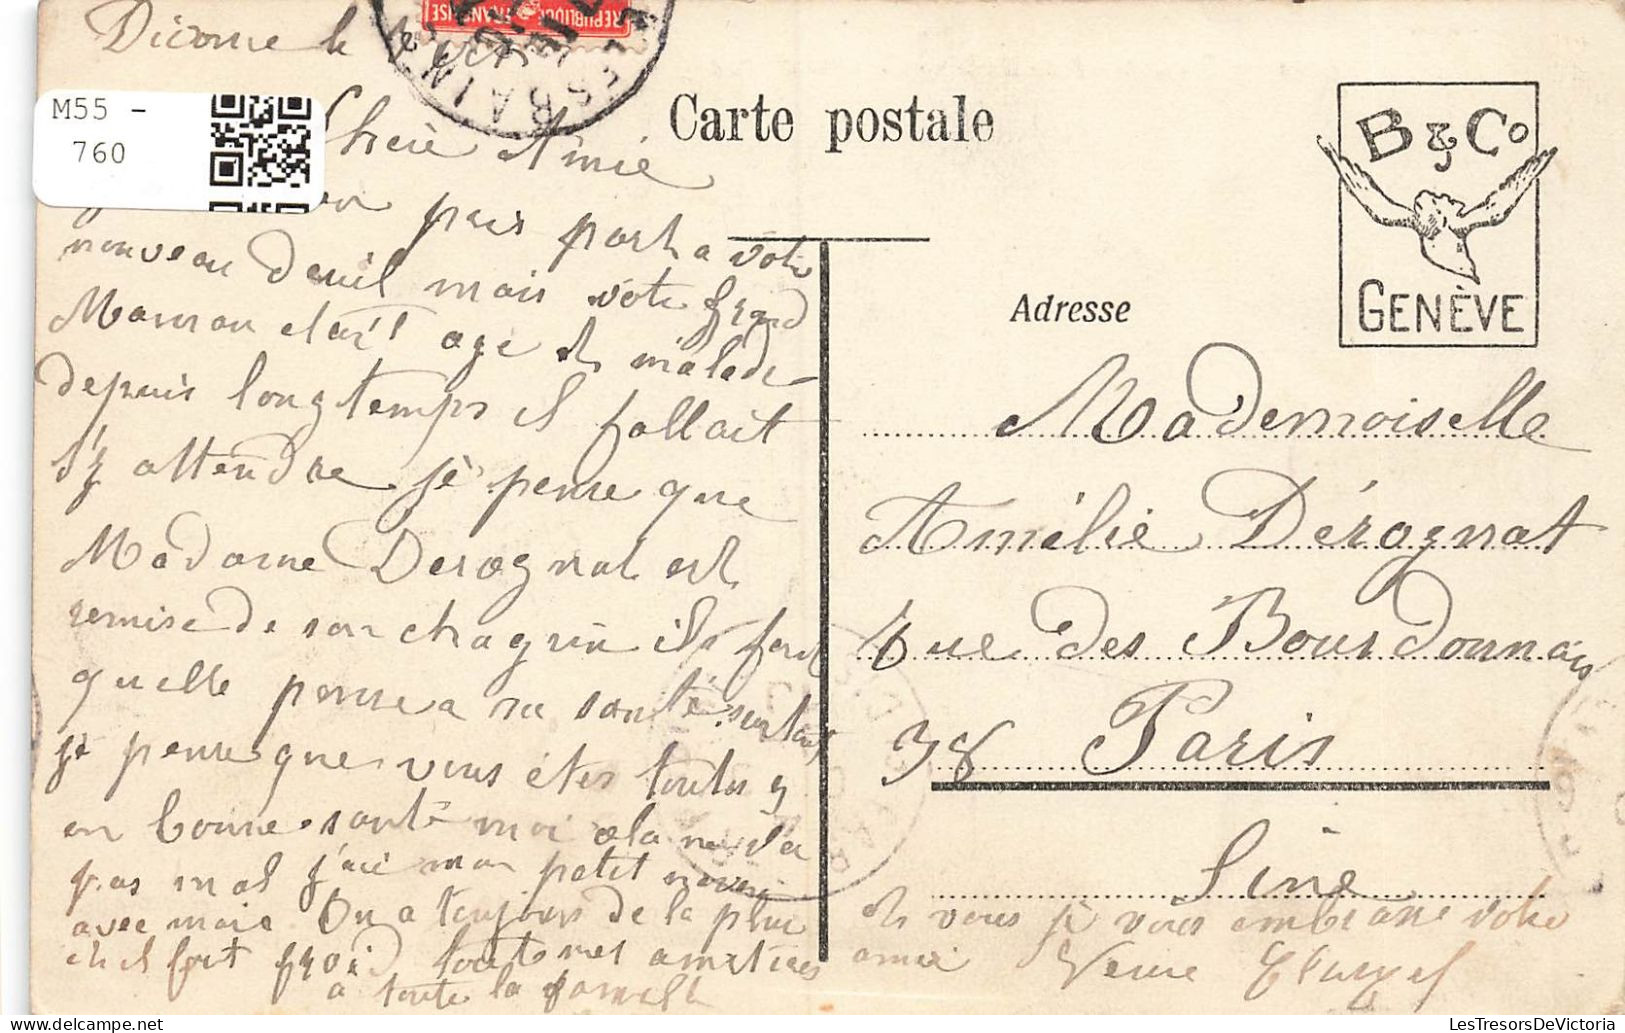 Divonne le
REPUBLIQUE FRANÇAISE
M55 -
760
Chère Amie
Carte postale
B & Co
GENÈVE
pais part a votre
nouveau deuil mais votre grand
Maman etait age et malade
depuis longtemps il fallait
s'y attendre je pense que
Madame Derognat est
remise de son chagrin il faut
quelle pense a sa santé surtout
je pense que vous étes toutes
en bonne santé moi cela ne va
pas mal j'ai mon petit neveu
avec moi On a toujours de la pluie
et il fait froid toutes mes amitiees
a toute la famille
Adresse
Mademoiselle
Amélie Dérognat
rue des Bourdonnais
38 Paris
Sine
et vous je vous embrasse votre
amie Veuve
LesTresorsDeVictoria